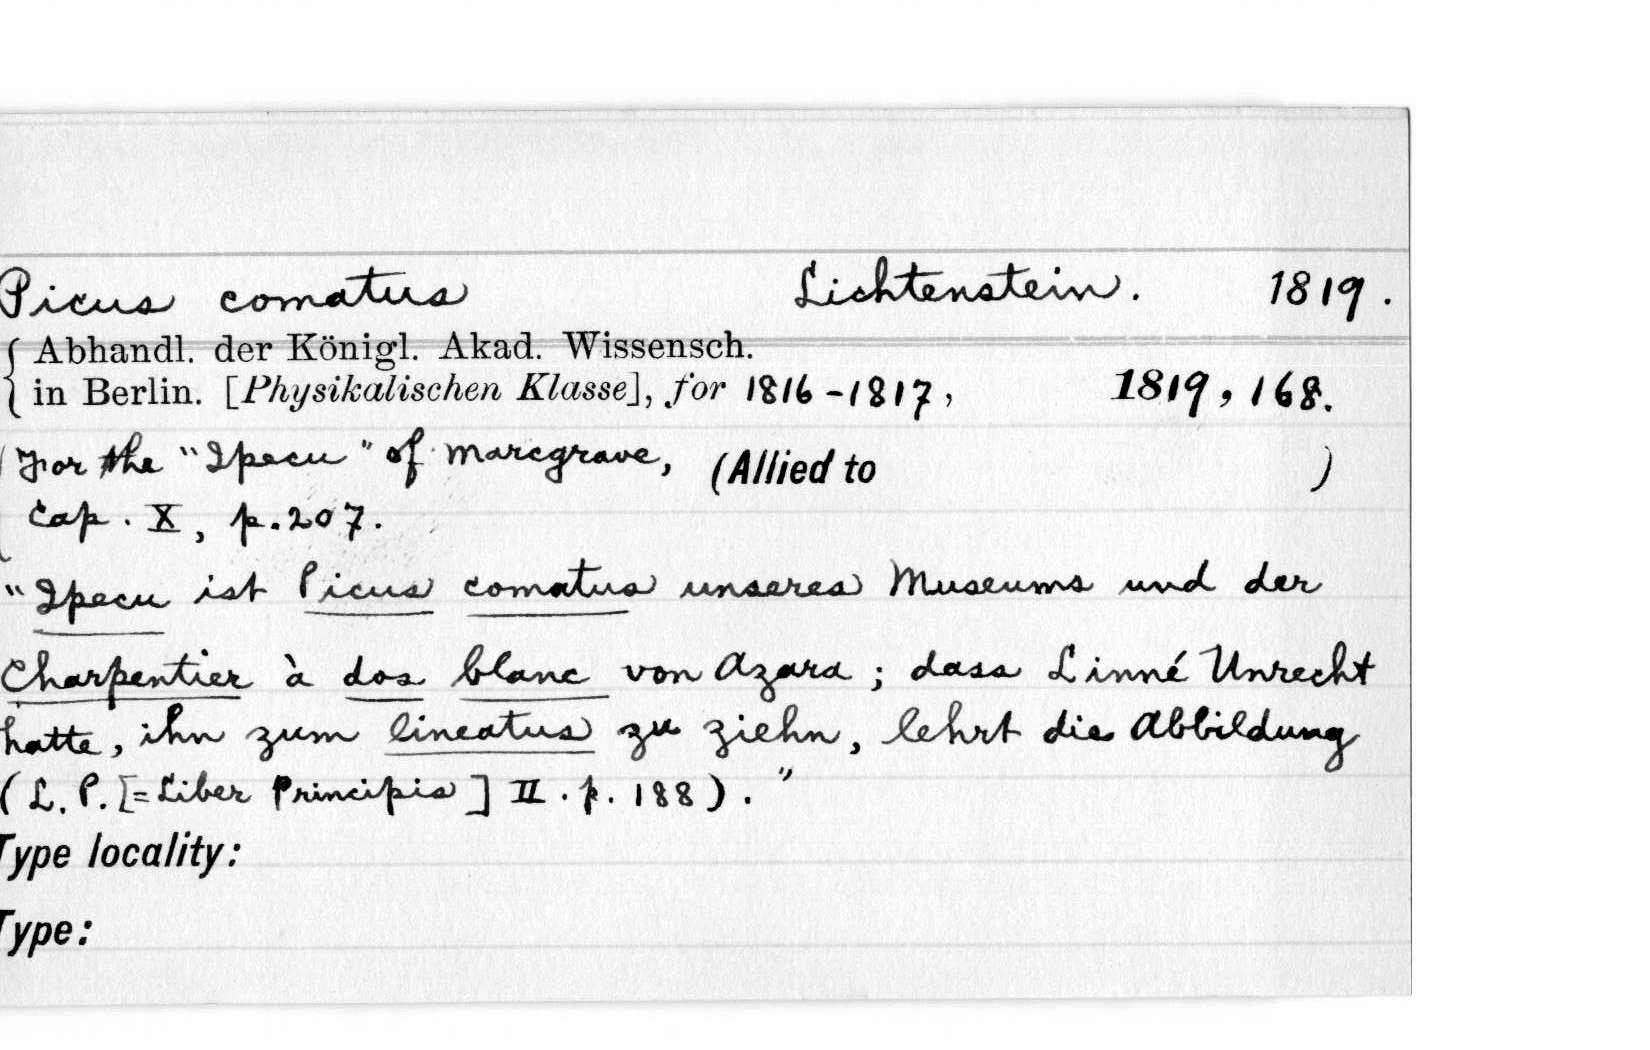 Picus comatus Lichtenstein. 1819.
Abhandl. der Königl. Akad. Wissensch.
in Berlin. [Physikalischen Klasse], for 1816-1817, 1819, 168.
For the "Ipecu" of Marcgrave, (Allied to )
Cap. X, p. 207.
"Ipecu ist Picus comatus unseres Museums und der
Charpentier à dos blanc von Azara; dass Linné Unrecht
hatte, ihn zum lineatus zu ziehn, lehrt die Abbildung
(L. P. [=Liber Principis] II. p. 188)."
Type locality:
Type: